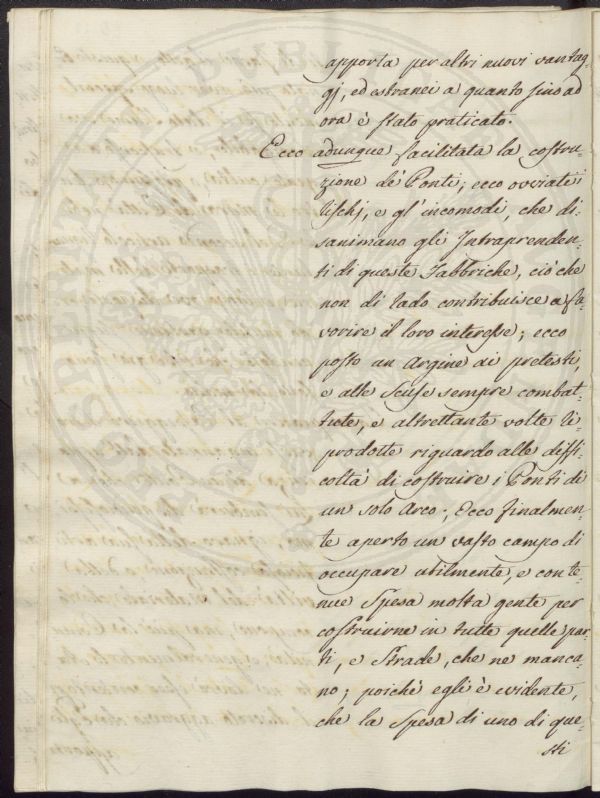 apporta per altri nuovi vantag-
gj, ed estranei a quanto sino ad
ora è stato praticato.
Ecco adunque facilitata la costru-
zione de' Ponti; ecco ovviati i
rischj, e gl' incomodi, che di-
sanimano gli Intraprenden-
ti di queste Fabbriche, ciò che
non di rado contribuisce a fa-
vorire il loro interesse; ecco
posto un argine ai pretesti,
e alle scuse sempre combat-
tute, e altrettante volte ri-
prodotte riguardo alle diffi-
coltà di costruire i Ponti di
un solo Arco; Ecco finalmen-
te aperto un vasto campo di
occupare utilmente, e con te-
nue Spesa molta gente per
costruirne in tutte quelle par-
ti, e Strade, che ne manca-
no; poichè egli è evidente,
che la Spesa di uno di que-
sti